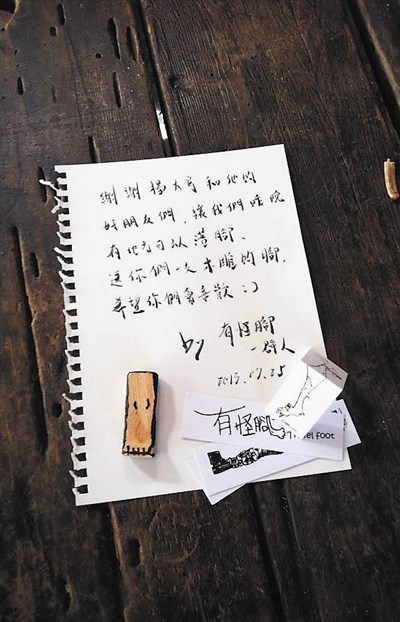 謝謝楊大哥和他的
好朋友們，讓我們昨晚
有地方可以落腳、
送你們一支木雕的腳，
希望你們會喜歡 :)
by 有怪腳
一群人
有怪腳
Foot